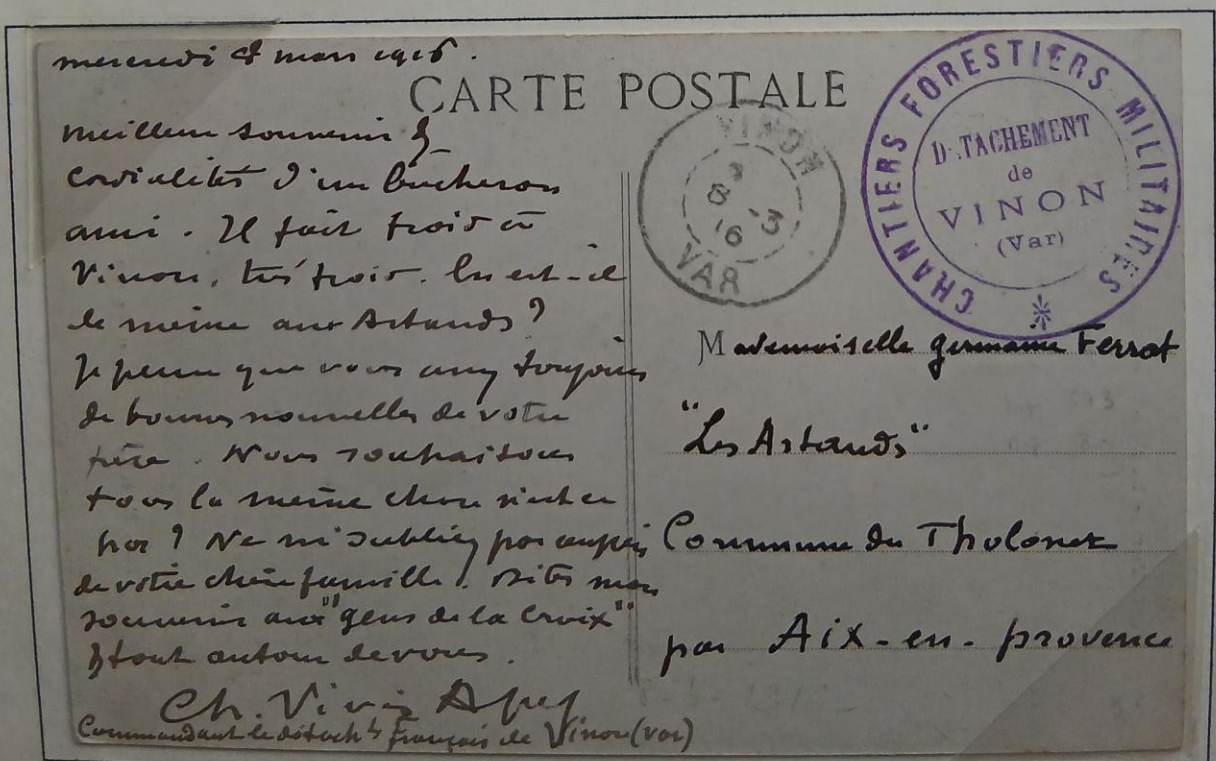 mercredi 8 mars 1916.
CARTE POSTALE
meilleur souvenir &
cordialités d'un bûcheron
ami. Il fait froid à
Vinon, très froid. En est-il
de même aux Artauds?
Je pense que vous avez toujours
de bonnes nouvelles de votre
frère. Nous souhaitons
tous la même chose n'est-ce
pas? Ne m'oubliez pas auprès
de votre chère famille. Dites mon
souvenir aux "gens de la Croix"
& tout autour de vous.
Ch.
Commandant le détacht français de Vinon (var)
VINON
8 -3
16
VAR
CHANTIERS FORESTIERS MILITAIRES
D.TACHEMENT
de
VINON
(Var)
Mademoiselle germaine Ferrat
"Les Artauds"
Commune du Tholonet
par Aix-en-provence